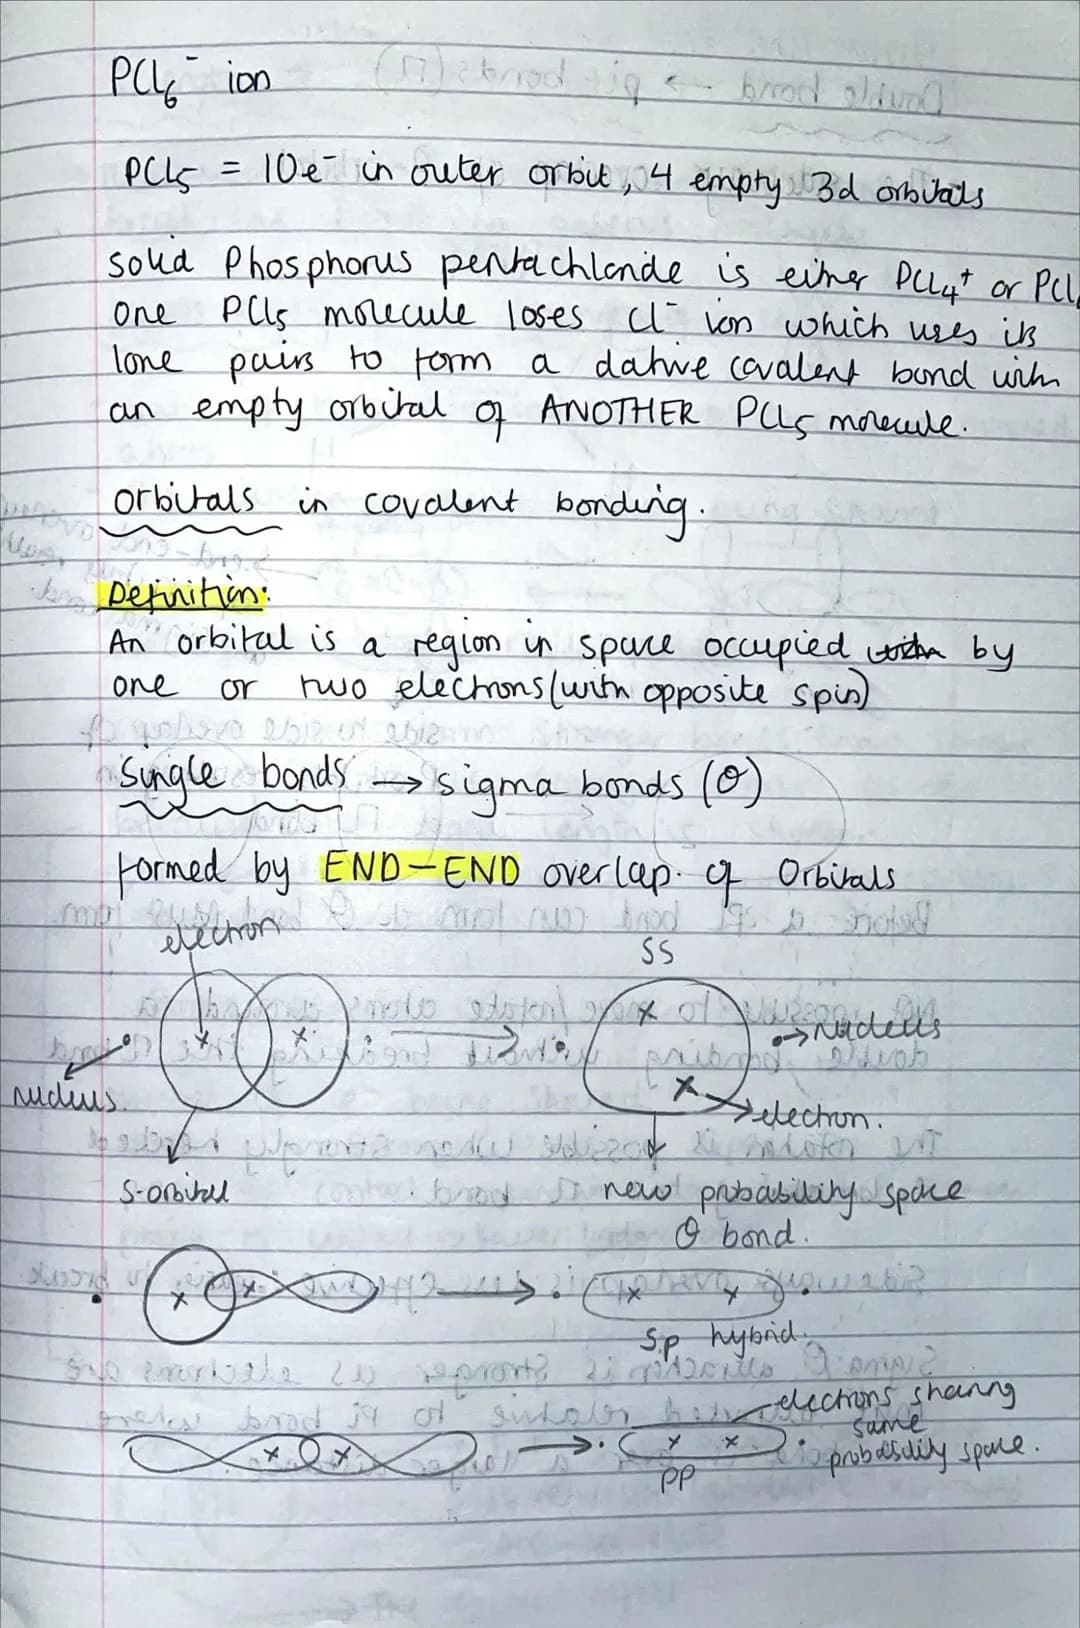 PCl6⁻ ion
PCl5 = 10e⁻ in outer orbit, 4 empty 3d orbitals
solid Phosphorus pentachloride is either PCl4⁺ or PCl
One PCl5 molecule loses Cl⁻ ion which uses its
lone pairs to form a dative covalent bond with
an empty orbital of ANOTHER PCl5 molecule.
orbitals in covalent bonding.
Definition:
An orbital is a region in space occupied with by
one or two electrons (with opposite spin)
Single bonds → sigma bonds (σ)
Formed by END-END overlap of Orbitals
electron
SS
→ nucleus
nucleus.
electron.
S-orbital
new probability space
σ bond.
S.p hybrid.
electrons sharing
same
probability space.
PP